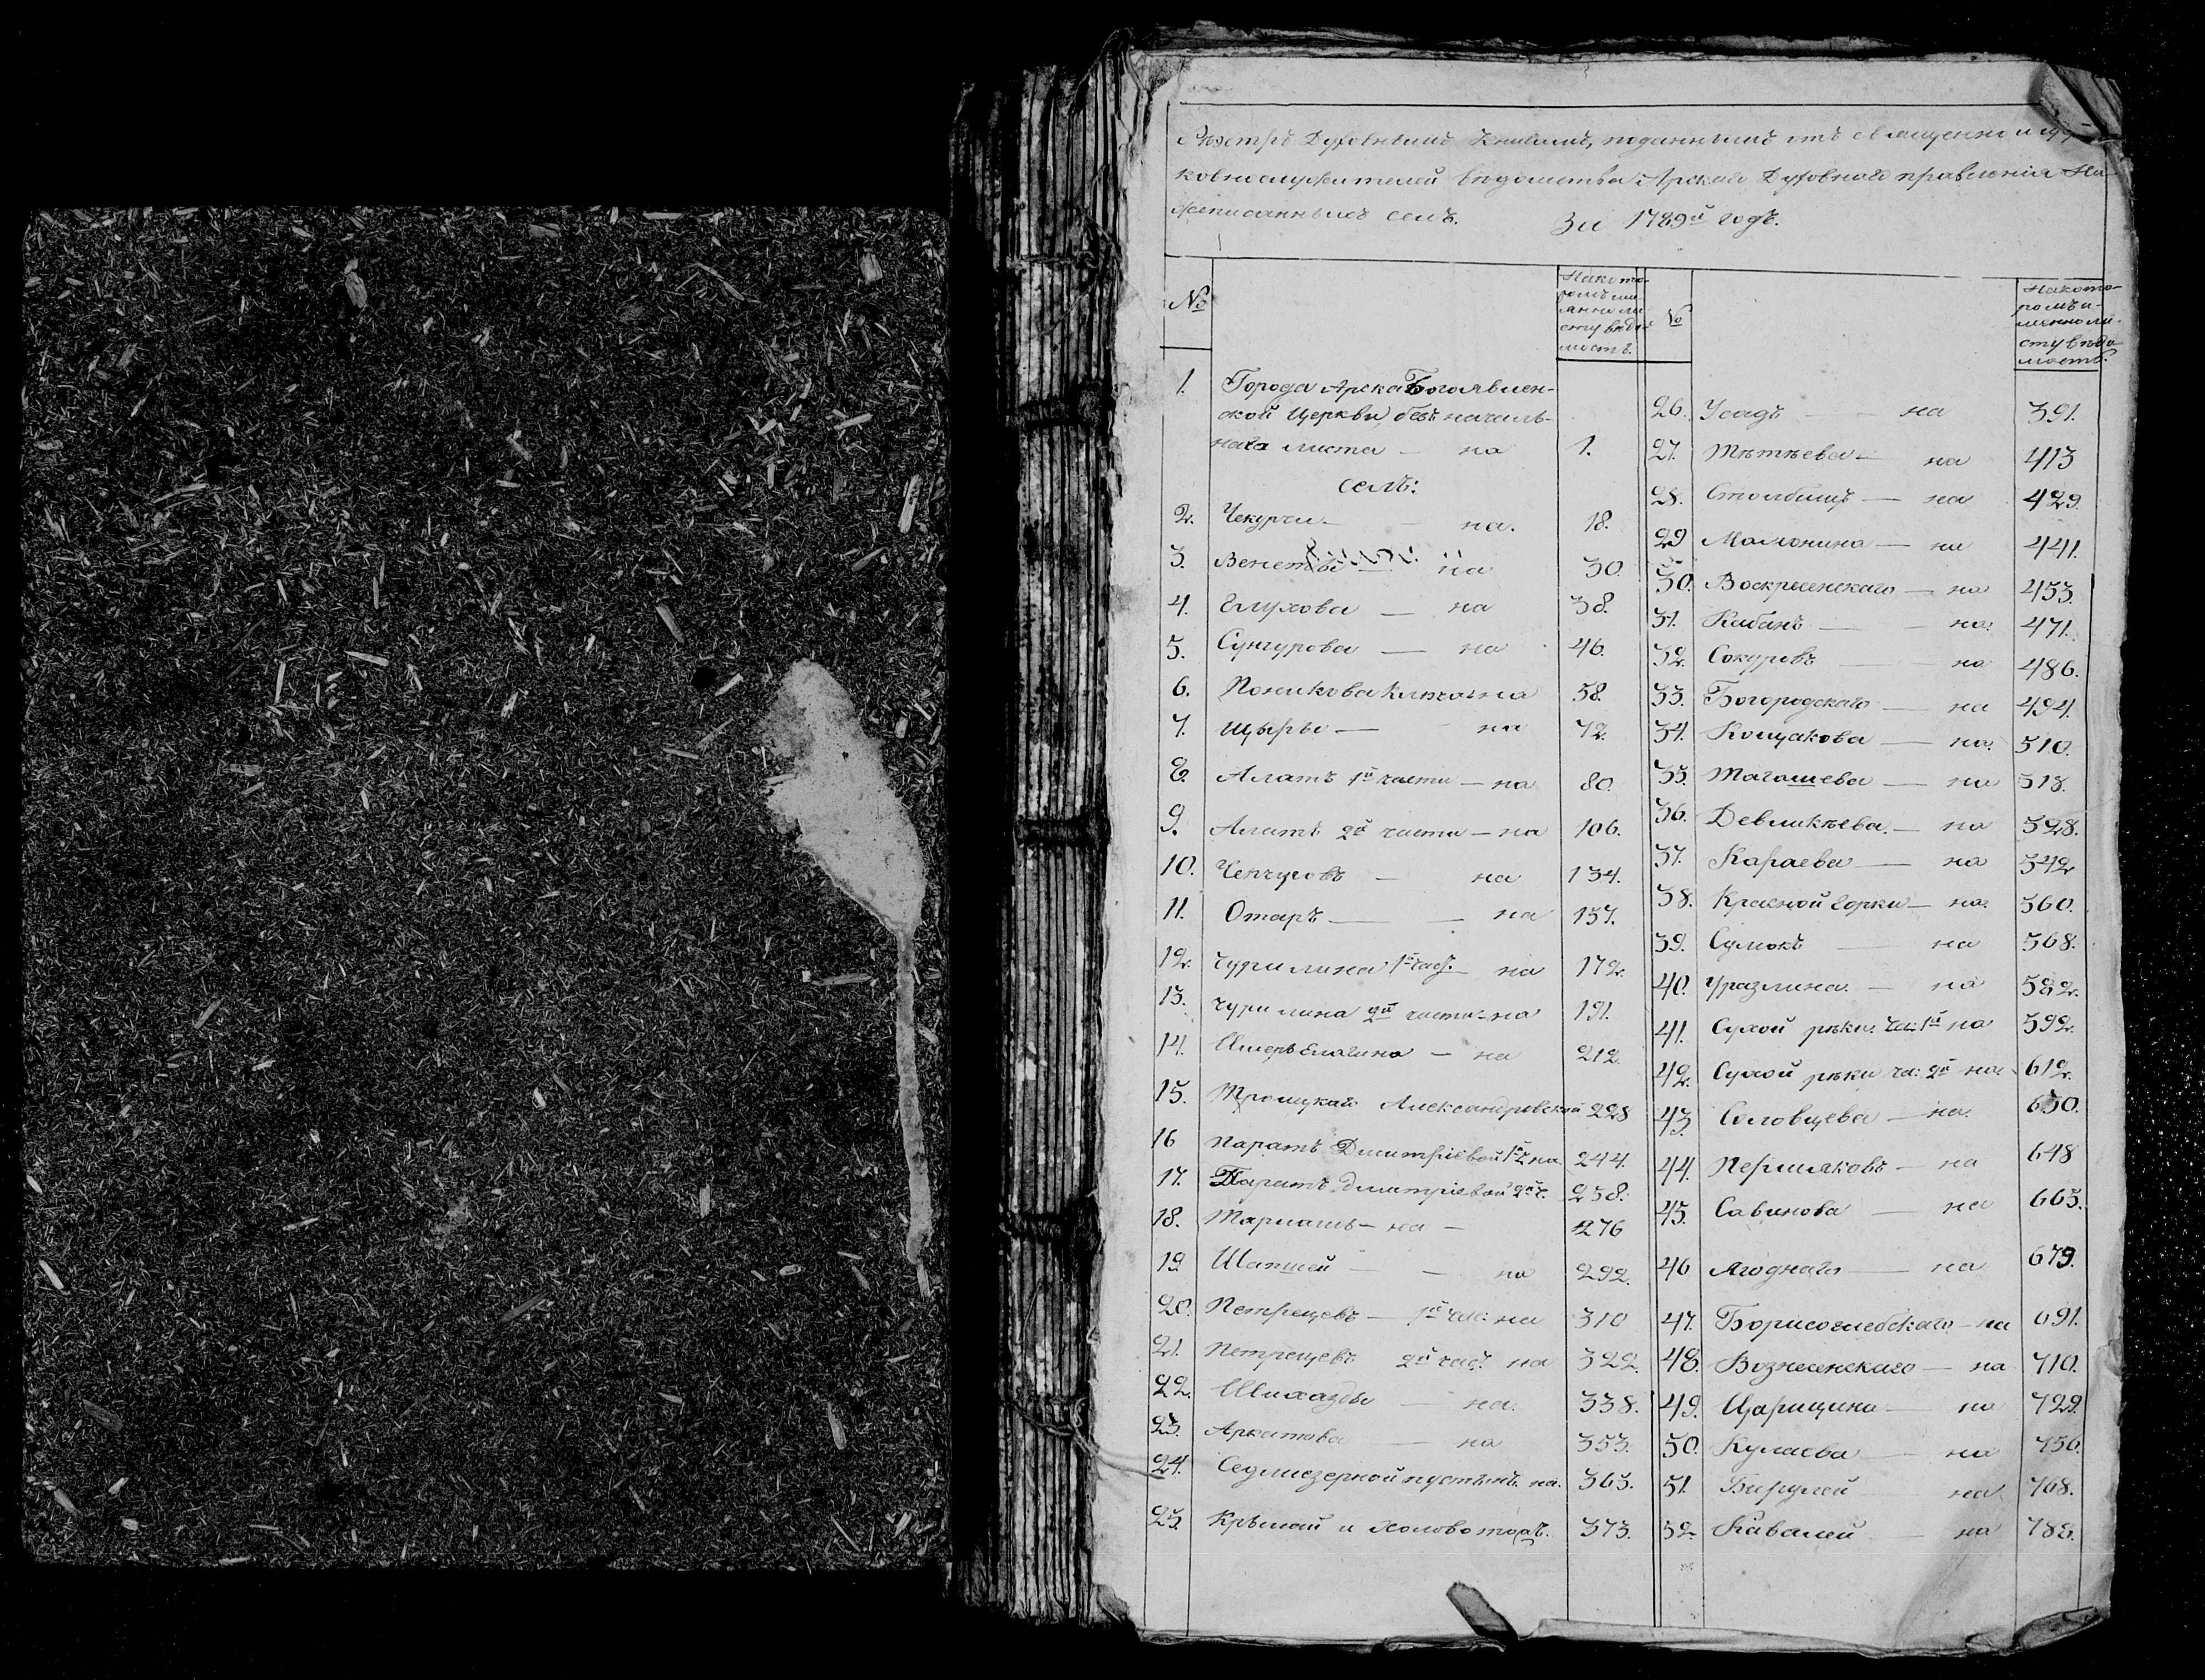 Реэстръ Духовнымъ книгамъ, поданнымъ отъ священно и цер-
ковнослужителей вѣдомства Арскаго Духовнаго правленія На-
жеписанныхъ селъ. За 1789й годъ.
№
На кото-
ромъ и-
мянно ли-
сту вѣдо-
мость.
1. Города Арска Богоявлен-
ской Церкви, безъ началь-
наго листа — на 1.
селъ:
2. Чекурчи — на. 18.
3. Венеты — на 30.
4. Глухова — на 38.
5. Сунгурова — на 46.
6. Поникова Ключа на 58.
7. Щырьи — на 72.
8. Алатъ 1й части — на 80.
9. Алатъ 2й части — на 106.
10. Чепчуговъ — на 134.
11. Отаръ — на 157.
12. Чурилина 1й час: — на 172.
13. Чурилина 2й части — на 191.
14. Ишеръ Елагина — на 212.
15. Троицкаго Александровской 228
16 Паратъ Димитріевой 1й ч. на 244.
17. Паратъ Димитріевой 2й ч. 258.
18. — на — 276
19. Шапшей — на 292.
20. Петрецевъ — 1й час: на 310
21. Петрецевъ 2й час: на 322.
22. Шихазды — на. 338.
23. Аркатова — на 353.
24. Седмиезерной пустынь. на. 363.
25. Крылай и 373.
№
На кото-
ромъ и-
менно ли-
сту вѣдо-
мость.
26. Усадъ — на 391.
27. Тѣтѣева — на 413
28. Столбищъ — на 429.
29 Мамонина — на 441.
30. Воскресенскаго — на 453.
31. Кабанъ — на: 471.
32. Сокуровъ — на 486.
33. Богородскаго — на 494.
34. Кощакова — на: 510.
35. Тагашева — на 518.
36. Девликѣева. — на 528.
37. Караева — на 542.
38. Красной Горки — на: 560.
39. Сумокъ — на 568.
40. Уразлина. — на 582.
41. Сухой рѣки. ча: 1й на 592.
42. Сухой рѣки ча: 2й на: 612.
43. Соловцева — на. 630.
44. Пермяковъ — на 648
45. Савинова — на 663.
46 Ягоднаго — на 679.
47. Борисоглебскаго — на 691.
48. Вознесенскаго — на 710.
49. Царицина — на 729.
50. Кулаева — на 756.
51. Бирулей — на 768.
52. Кавалей — на 788.